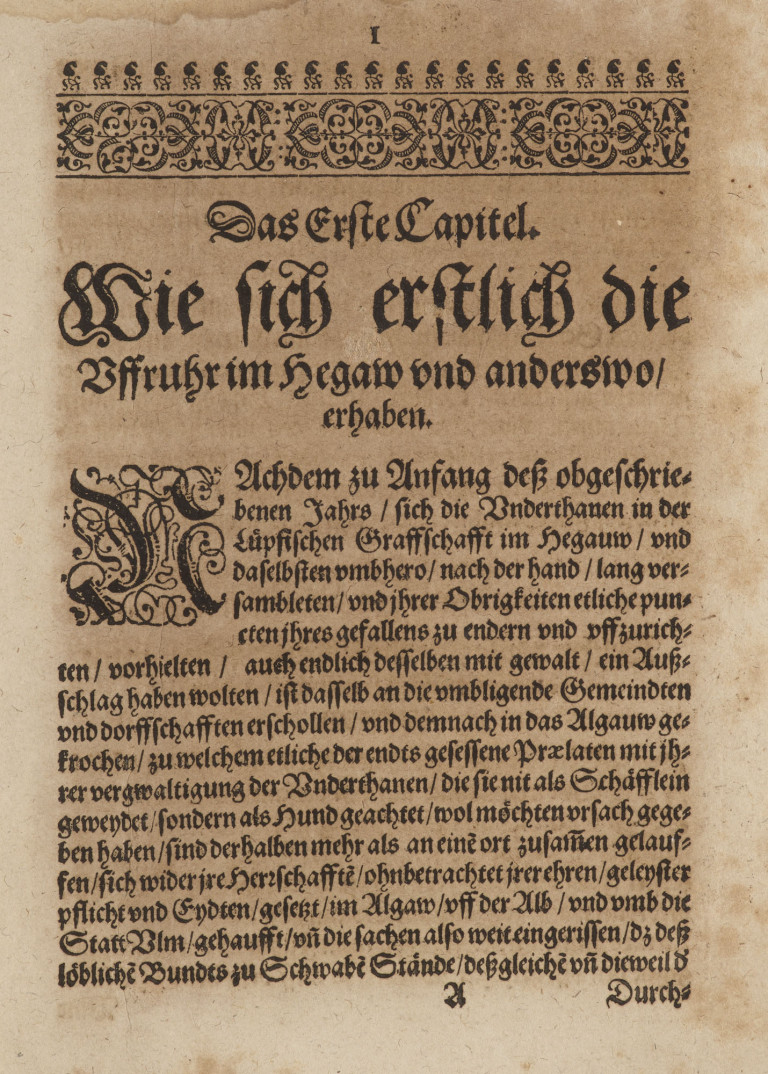 1
Das Erste Capitel.
Wie sich erstlich die
Vffruhr im Hegaw vnd anderswo/
erhaben.
NAchdem zu Anfang deß obgeschrie-
benen Jahrs / sich die Vnderthanen in der
Lüpfischen Graffschafft im Hegauw / vnd
daselbsten vmbhero / nach der hand / lang ver-
sambleten / vnd jhrer Obrigkeiten etliche pun-
cten jhres gefallens zu endern vnd vffzurich-
ten / vorhielten / auch endlich desselben mit gewalt / ein Auß-
schlag haben wolten / ist dasselb an die vmbligende Gemeindten
vnd dorffschafften erschollen / vnd demnach in das Algauw ge-
krochen / zu welchem etliche der endts gesessene Prælaten mit jh-
rer vergwaltigung der Vnderthanen / die sie nit als Schäfflein
geweydet / sondern als Hund geachtet / wol möchten vrsach gege-
ben haben / sind derhalben mehr als an einē ort zusam̄en gelauf-
fen / sich wider jre Herrschafftē / ohnbetrachtet jrer ehren / geleyster
pflicht vnd Eydten / gesetzt / im Algaw / vff der Alb / vnd vmb die
Statt Vlm / gehaufft / vn̄ die sachen also weit eingerissen / dz deß
löblichē Bundts zu Schwabē Stände / deßgleichē vn̄ dieweil d'
A Durch-